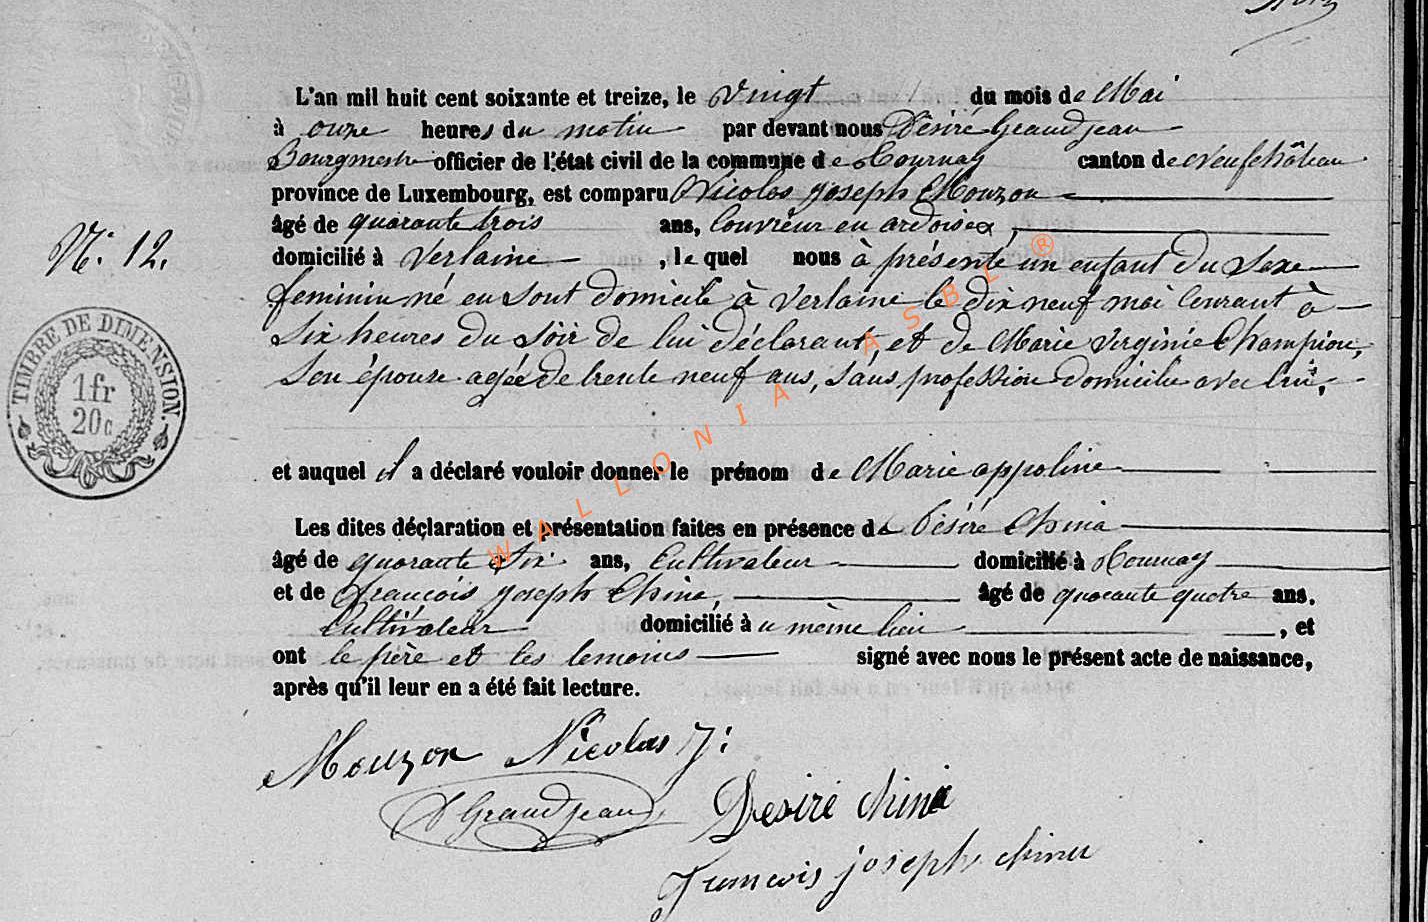 L'an mil huit cent soixante et treize, le Vingt du mois de Mai
à onze heures du matin par devant nous Désiré Grandjean
Bourgmestre officier de l'état civil de la commune de Tournay canton de Neufchâteau
province de Luxembourg, est comparu Nicolas Joseph Mouzon
âgé de quarante trois ans, Couvreur en ardoises,
domicilié à Verlaine, le quel nous à présenté un enfant du sexe
feminin né en sont domicile à Verlaine le dix neuf mai Courant à
Six heures du soir de lui déclarant, et de Marie Virginie Champion,
Son épouse agée de trente neuf ans, sans profession domicilié avec lui,
N° 12.
TIMBRE DE DIMENSION.
1 fr
20 c
et auquel il a déclaré vouloir donner le prénom de Marie appoline
Les dites déclaration et présentation faites en présence de Désiré China
âgé de quarante Six ans, Cultivateur domicilié à Tournay
et de François joseph China, âgé de quarante quatre ans,
Cultivateur domicilié à u même lieu, et
ont le père et les temoins signé avec nous le présent acte de naissance,
après qu'il leur en a été fait lecture.
Mouzon Nicolas J:
D Grandjean
Desiré China
Francois joseph china
WALLONIA ASBL ®